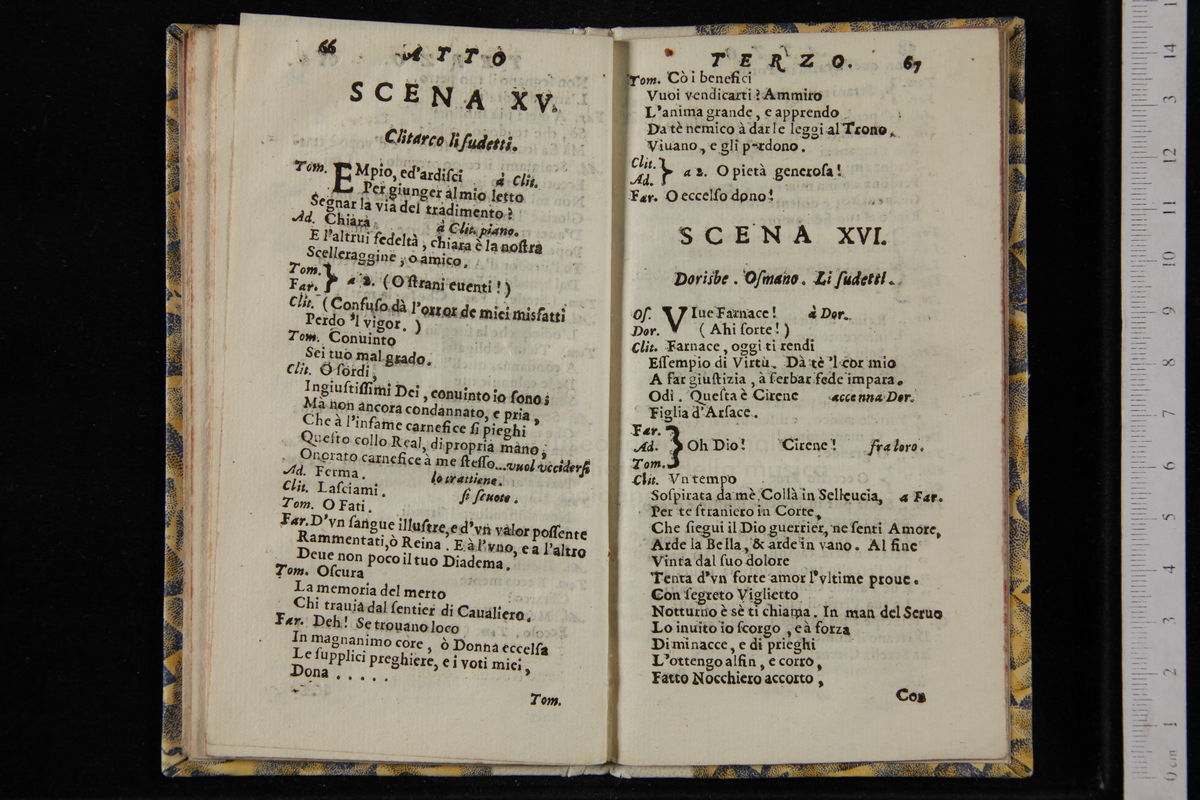 66
ATTO
SCENA XV.
Clitarco li ſudetti.
Tom. EMpio, ed'ardiſci à Clit.
Per giunger al mio letto
Segnar la via del tradimento ?
Ad. Chiara à Clit. piano.
E l'altrui fedeltà , chiara è la noſtra
Scelleraggine , o amico .
Tom.
Far. } a 2. ( O ſtrani euenti ! )
Clit. ( Confuſo dà l'orror de miei misfatti
Perdo 'l vigor. )
Tom. Conuinto
Sei tuo mal grado .
Clit. O ſordi ,
Ingiuſtiſſimi Dei , conuinto io ſono ;
Ma non ancora condannato, e pria ,
Che à l'infame carnefice ſi pieghi
Queſto collo Real, di propria mano ;
Onorato carnefice à me ſteſſo... vuol vcciderſi
Ad. Ferma . lo trattiene .
Clit. Laſciami . ſi ſcuote .
Tom. O Fati .
Far. D'vn ſangue illuſtre, e d'vn valor poſſente
Rammentati, ò Reina . E à l'vno, e a l'altro
Deue non poco il tuo Diadema .
Tom. Oſcura
La memoria del merto
Chi trauia dal ſentier di Caualiero .
Far. Deh ! Se trouano loco
In magnanimo core , ò Donna eccelſa
Le ſupplici preghiere, e i voti miei ,
Dona . . . . .
Tom.
TERZO. 67
Tom. Cò i benefici
Vuoi vendicarti ? Ammiro
L'anima grande , e apprendo
Da tè nemico à dar le leggi al Trono .
Viuano , e gli perdono .
Clit.
Ad. } a 2. O pietà generoſa !
Far. O eccelſo dono !
SCENA XVI.
Dorisbe . Oſmano . Li ſudetti .
Oſ. VIue Farnace ! à Dor.
Dor. ( Ahi ſorte ! )
Clit. Farnace , oggi ti rendi
Eſſempio di Virtù . Dà tè 'l cor mio
A far giuſtizia , à ſerbar fede impara .
Odi . Queſta è Cirene accenna Dor.
Figlia d'Arſace .
Far.
Ad. } Oh Dio ! Cirene ! fra loro .
Tom.
Clit. Vn tempo
Soſpirata da mè . Collà in Selleucia, a Far.
Per te ſtraniero in Corte ,
Che ſiegui il Dio guerrier, ne ſenti Amore ,
Arde la Bella , & arde in vano . Al fine
Vinta dal ſuo dolore
Tenta d'vn forte amor l'vltime proue .
Con ſegreto Viglietto
Notturno è sè ti chiama . In man del Seruo
Lo inuito io ſcorgo , e à forza
Di minacce , e di prieghi
L'ottengo alfin , e corro ,
Fatto Nocchiero accorto ,
Con